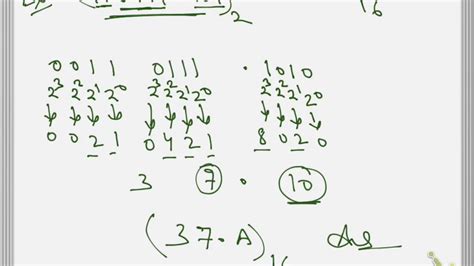 )₂ 16
0 0 1 1 0 1 1 1 · 1 0 1 0
2³ 2² 2¹ 2⁰ 2³ 2² 2¹ 2⁰ 2³ 2² 2¹ 2⁰
↓ ↓ ↓ ↓ ↓ ↓ ↓ ↓ ↓ ↓ ↓ ↓
0 0 2 1 0 4 2 1 8 0 2 0
3 7 · 10
(37·A)₁₆ Ans